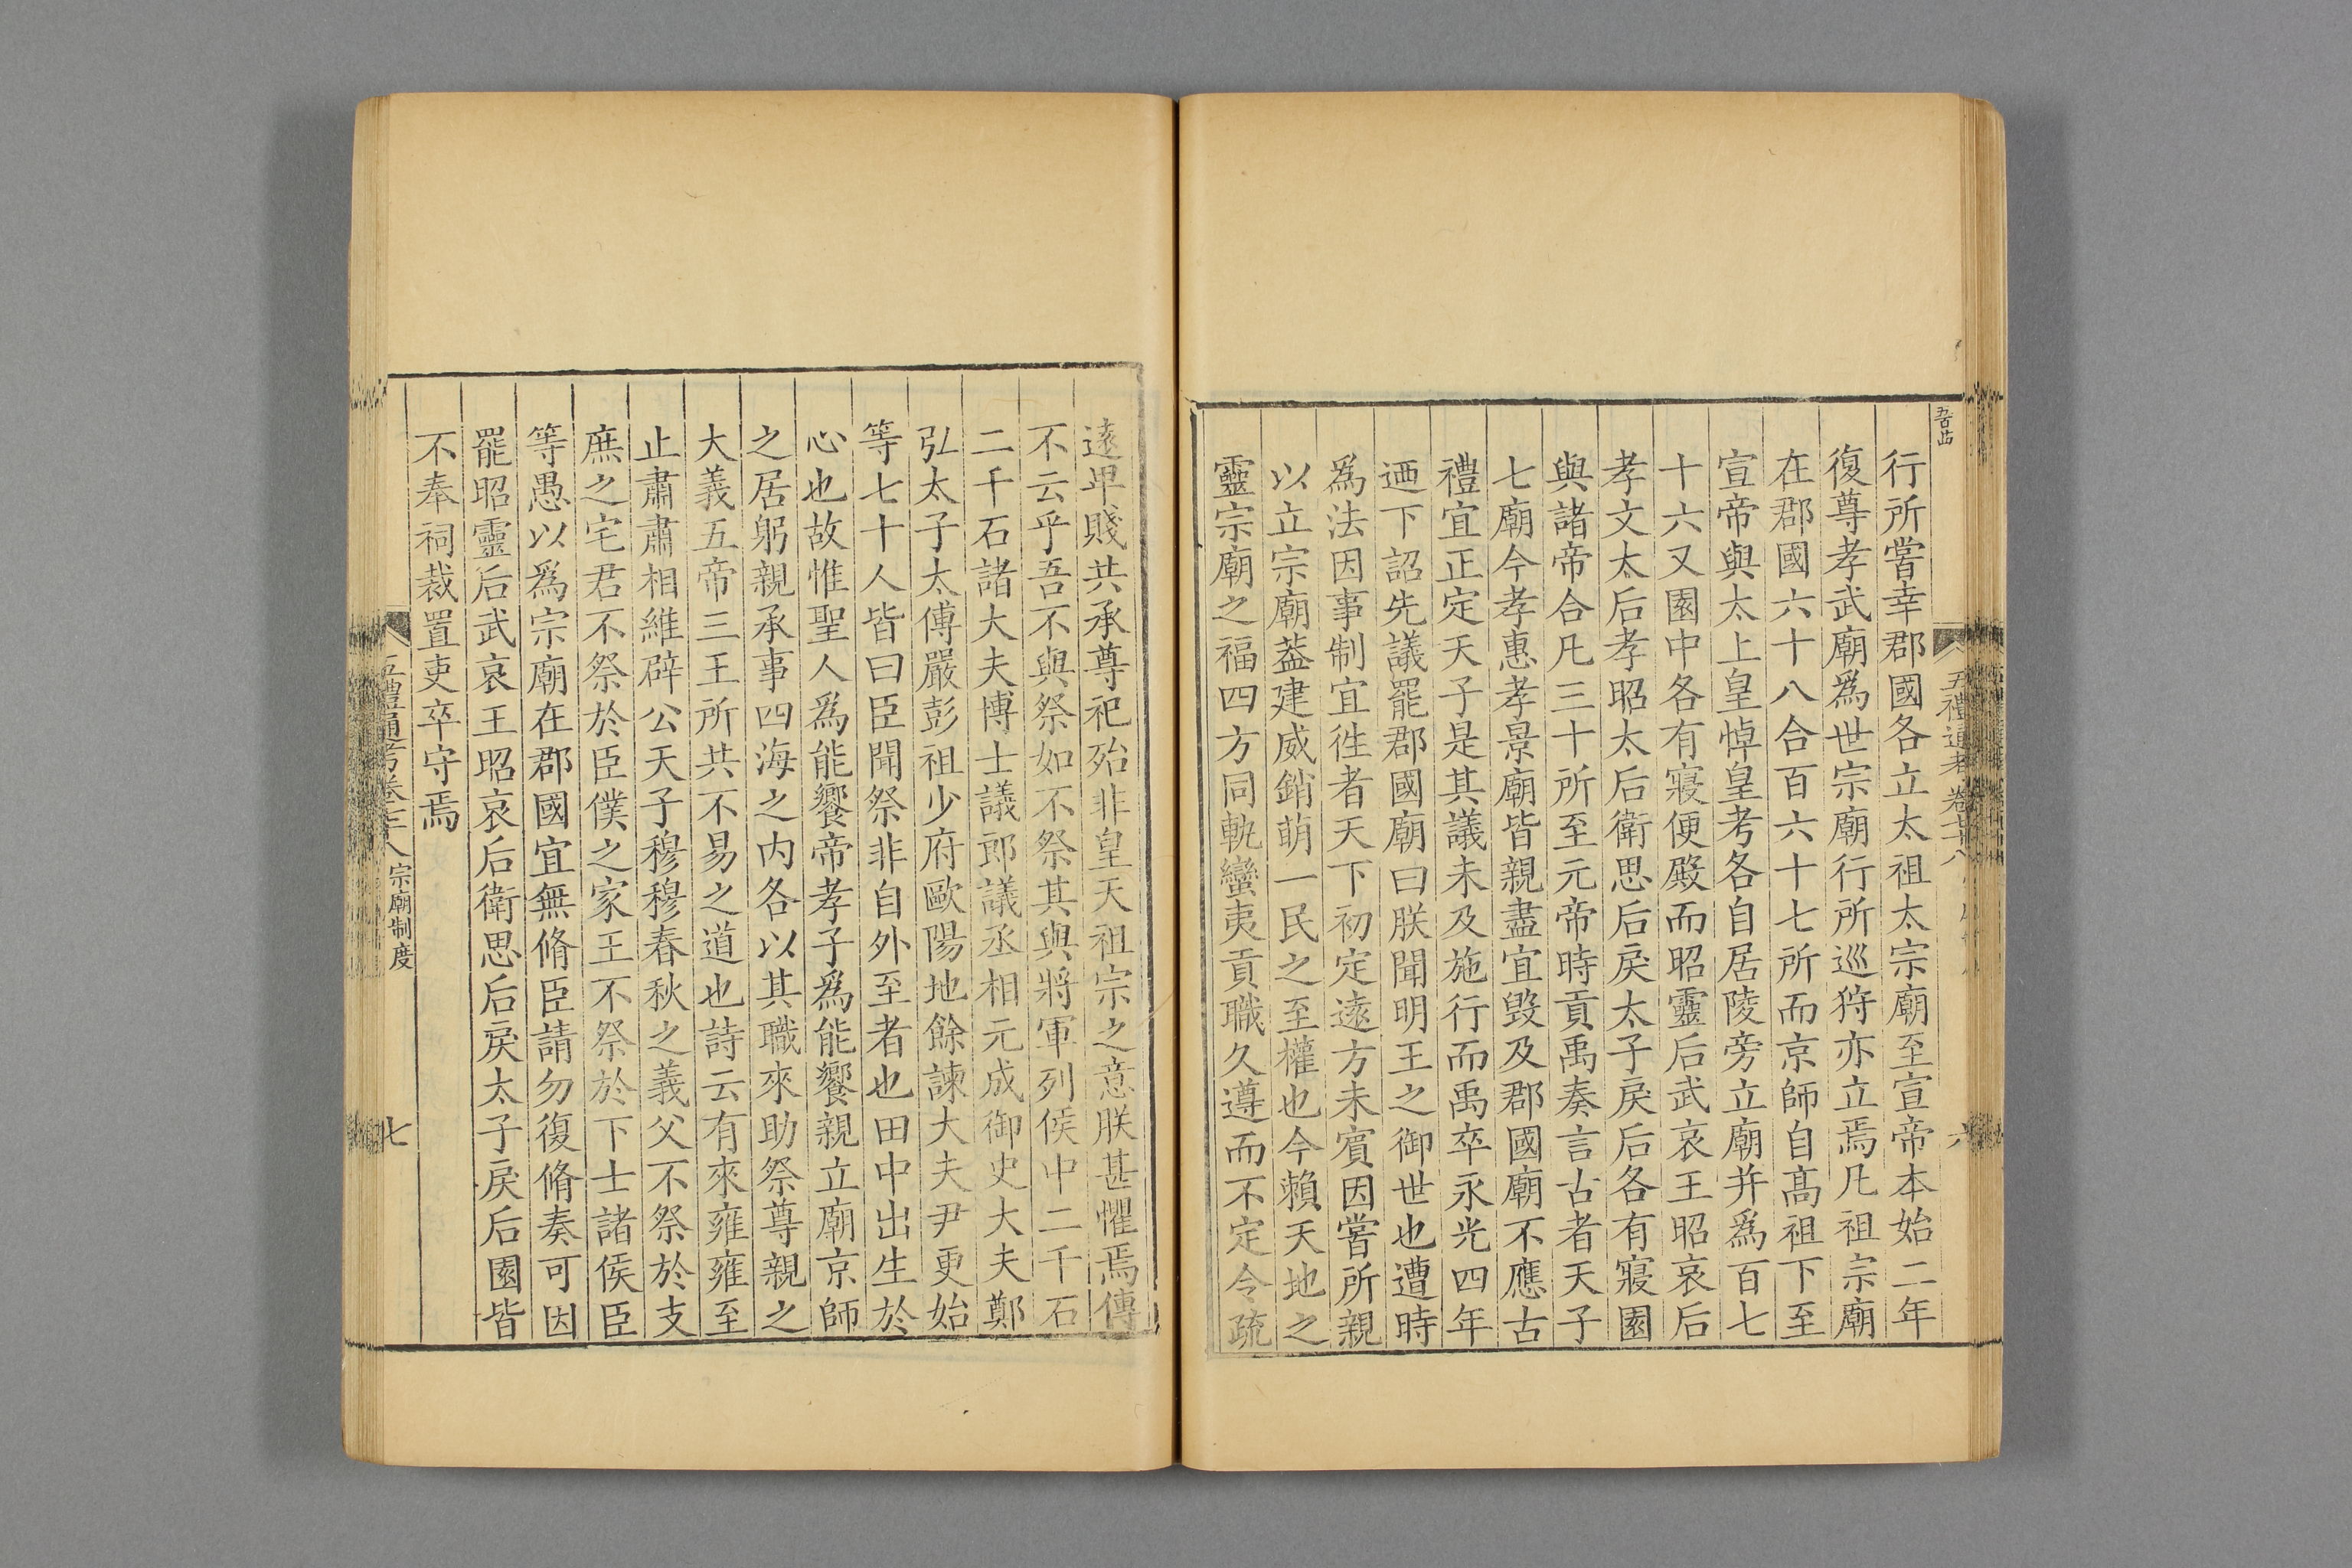 行所嘗幸郡國各立太祖太宗廟至宣帝本始二年
復尊孝武廟爲世宗廟行所巡狩亦立焉凡祖宗廟
在郡國六十八合百六十七所而京師自髙祖下至
宣帝與太上皇悼皇考各自居陵旁立廟并爲百七
十六又園中各有寢便殿而昭靈后武哀王昭哀后
孝文太后孝昭太后衛思后戾太子戾后各有寢園
與諸帝合凡三十所至元帝時貢禹奏言古者天子
七廟今孝惠孝景廟皆親盡宜毀及郡國廟不應古
禮宜正定天子是其議未及施行而禹卒永光四年
迺下詔先議罷郡國廟曰朕聞明王之御世也遭時
爲法因事制宜徃者天下初定逺方未賓因嘗所親
以立宗廟葢建威銷萌一民之至權也今賴天地之
靈宗廟之福四方同軌蠻夷貢職久遵而不定令疏
逺卑賤共承尊祀殆非皇天祖宗之意朕甚懼焉傳
不云乎吾不與祭如不祭其與將軍列侯中二千石
二千石諸大夫博士議郎議丞相元成御史大夫鄭
弘太子太傅嚴彭祖少府歐陽地餘諫大夫尹更始
等七十人皆曰臣聞祭非自外至者也田中出生於
心也故惟聖人爲能饗帝孝子爲能饗親立廟京師
之居躬親承事四海之内各以其職來助祭尊親之
大義五帝三王所共不易之道也詩云有來雍雍至
止肅肅相維辟公天子穆穆春秋之義父不祭於支
庶之宅君不祭於臣僕之家王不祭於下士諸侯臣
等愚以爲宗廟在郡國宜無脩臣請勿復脩奏可因
罷昭靈后武哀王昭哀后衛思后戾太子戾后園皆
不奉祠裁置吏卒守焉
五禮通考卷七十八 宗廟制度
七